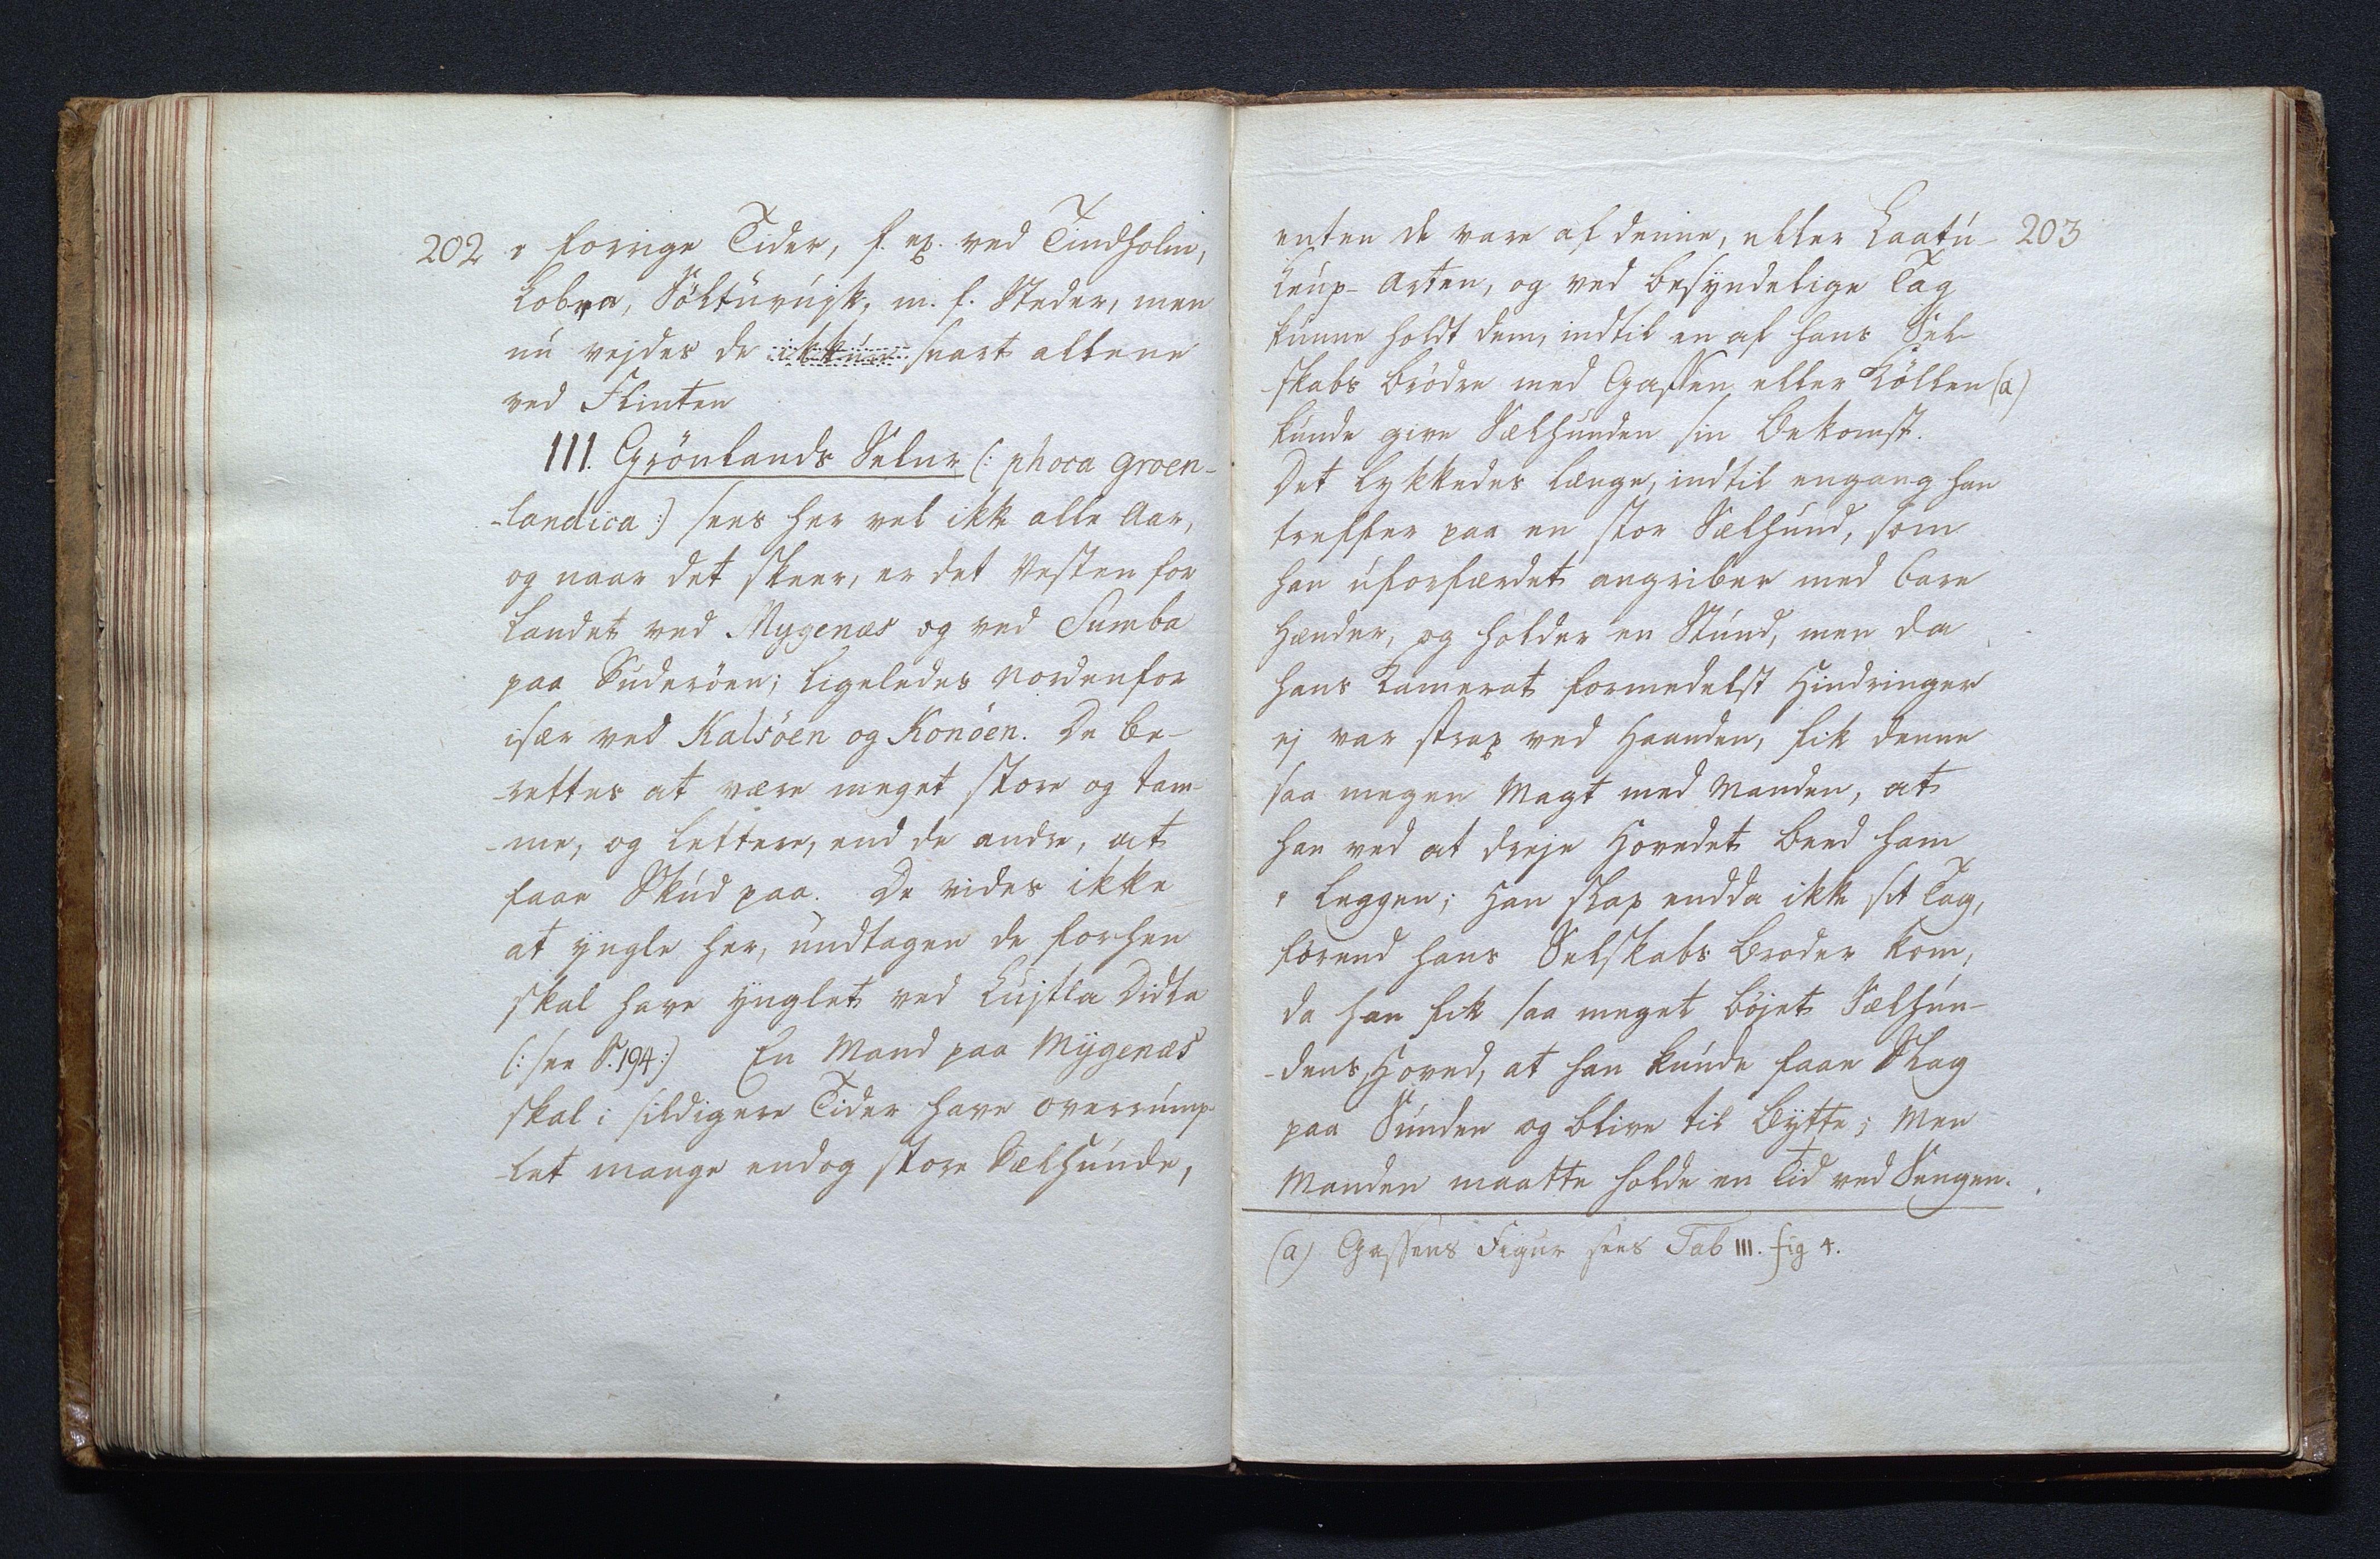 202
i forrige Tider, f. ex. ved Tindholm,
Lobra, Söltuvujk, m. f. Steder, men
nu vejdes de snart allene
ved Flinten
III. Grönlands Selur (: phoca groen-
-landica :) sees her vel ikke alle Aar,
og naar det skeer, er det Vesten for
Landet ved Mygenæs og ved Sumba
paa Suderöen; ligeledes Nordenfor
især ved Kalsöen og Konöen. De be-
-rettes at være meget store og tam-
-me, og lettere, end de andre, at
faae Skud paa. De vides ikke
at yngle her, undtagen de forhen
skal have ynglet ved Lujtla Didla
(: see S. 194 :) En Mand paa Mygenæs
skal i sildigere Tider have overrump-
-let mange endog store Sælhunde,
203
enten de vare af denne, eller Laatu-
kup-Arten, og ved besynderlige Tag
kunne holdt dem, indtil en af hans Sel-
-skabs brödre med Gassen eller Köllen (a)
kunde give Sælhunden sin Bekomst.
Det lykkedes længe, indtil engang han
treffer paa en stor Sælhund, som
han uforfærdet angriber med bare
Hænder, og holder en Stund, men da
hans Kamerat formedelst Hindringer
ej var strax ved Haanden, fik denne
saa megen Magt med Manden, at
han ved at dreje Hovedet beed ham
i Leggen; Han slap endda ikke sit Tag,
förend hans Selskabs Broder kom,
da han fik saa meget böjet Sælhun-
-dens Hoved, at han kunde faae Slag
paa Hunden og blive til Bytte; Men
Manden maatte holde en Tid ved Sengen.
(a) Gassens Figur sees Tab III. fig 4.